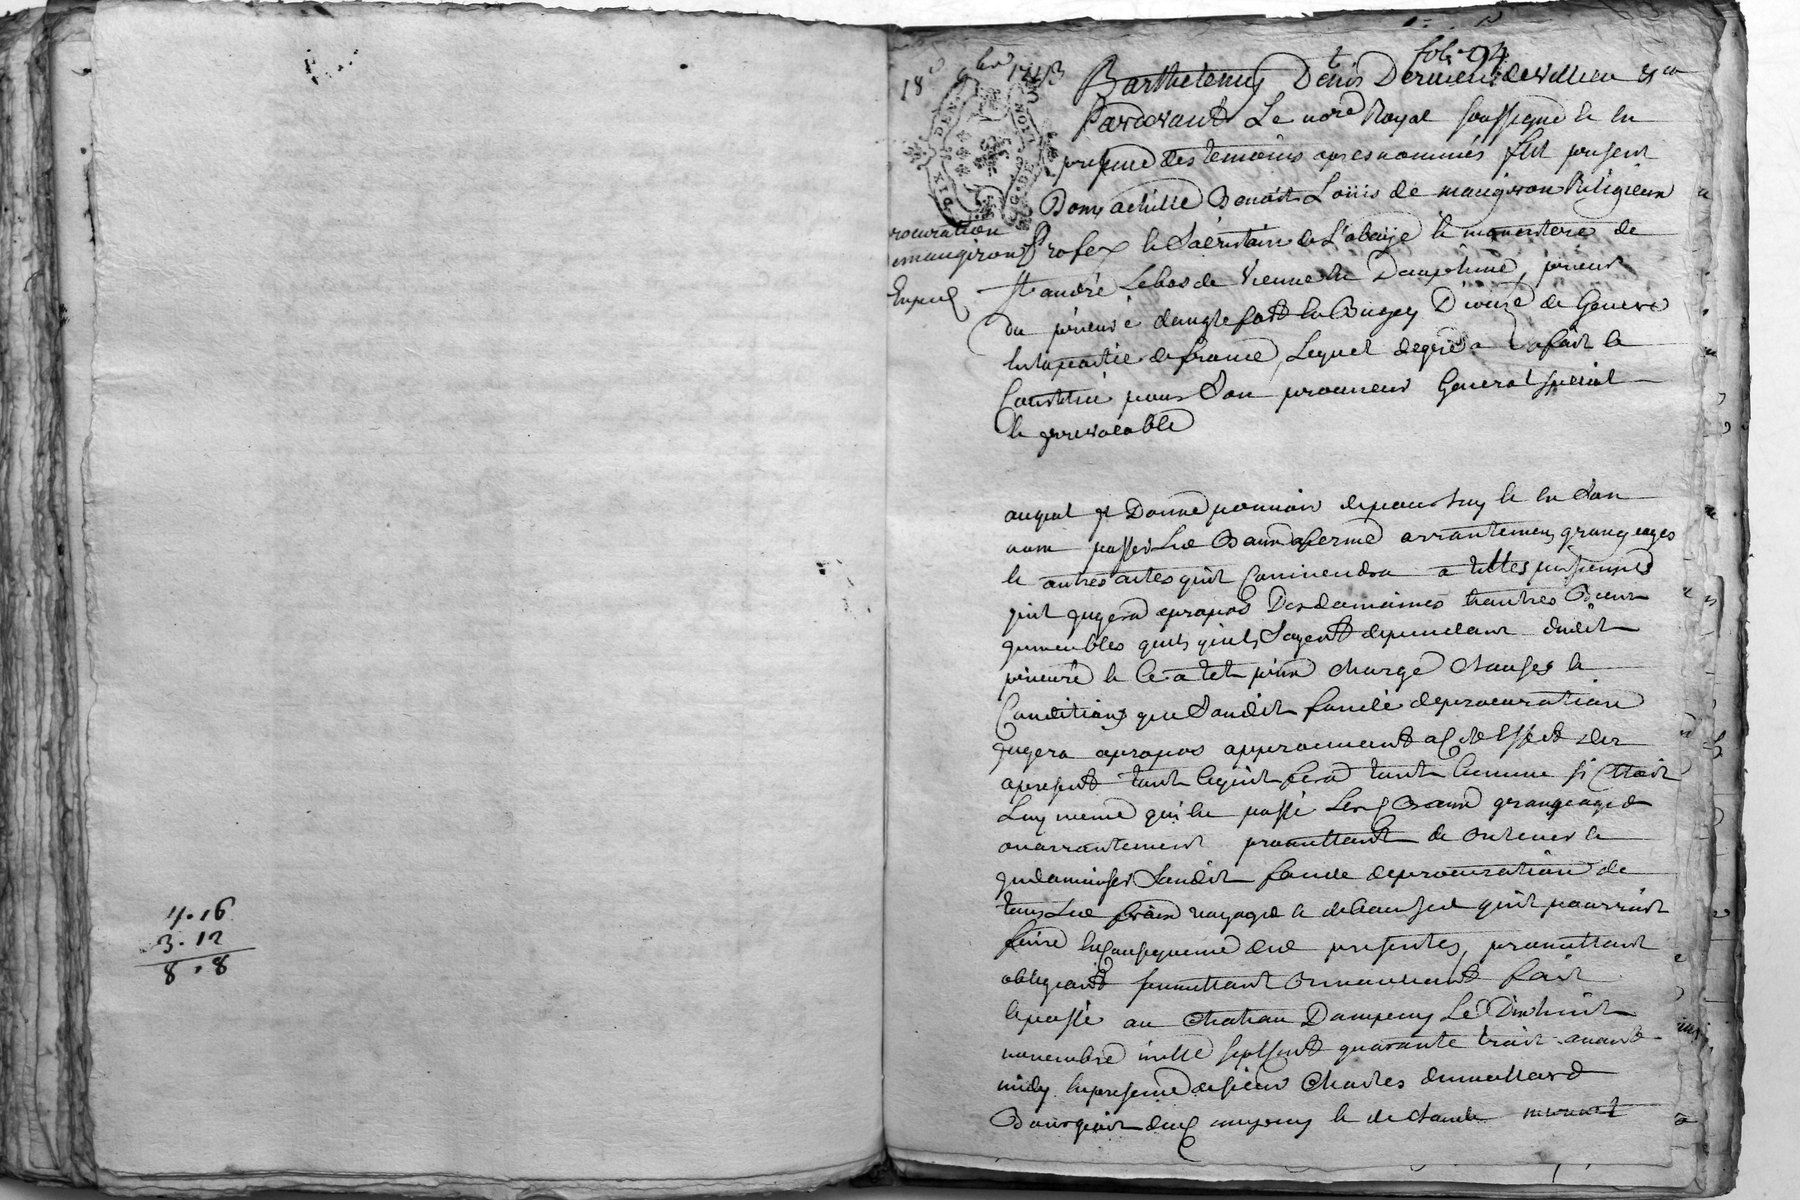 4.16
3.12
8.8
fol. 94
18e 9bre 1743
Barthelemy Denis
Pardevant Le nore Royal soussigné & en
presence des temoins apres nommés fut present
Dom achille Benoit Loüis de maugiron Religieux
Profex & Sacristain de L'abaije & monastere de
st andré Lebas de Vienne en Dauphiné, prieur
du prieuré danglefort en Bugey Dioceze de Geneve
en la partie de france, Lequel degré a fait &
Constitué pour Son procureur General special
& irrevocable
procuration
maugiron
auquel il Donne pouvoir de pour luy & en Son
nom passer Les Baux aferme arrantement grangeages
& autres actes quil Conviendra a telles personnes
quil jugera apropos Des domaines & autres Biens
immeubles quels quils Soyent dependant dudit
prieuré & Ce a tel prix charge Clauses &
Conditions que Sondit fondé deprocuration
jugera apropos approuvant des
apresent tout Cequil fera tout Comme si Cettoit
Luy meme qui eu passé Lesd Baux grangeages
ou arrantement promettant de &
indamniser Sondit fondé deprocuration de
tous Les frais voyages & debourses quil pourroit
faire en Consequence des presentes, promettant
obligeant soumettant Renonceant fait
& passé au chateau Dampeuy Le Dixhuit
novembre mille septcent quarante trois avant
midy en presence de sieur Charles dumollard
Bourgeois dud ampeuy & de Claude